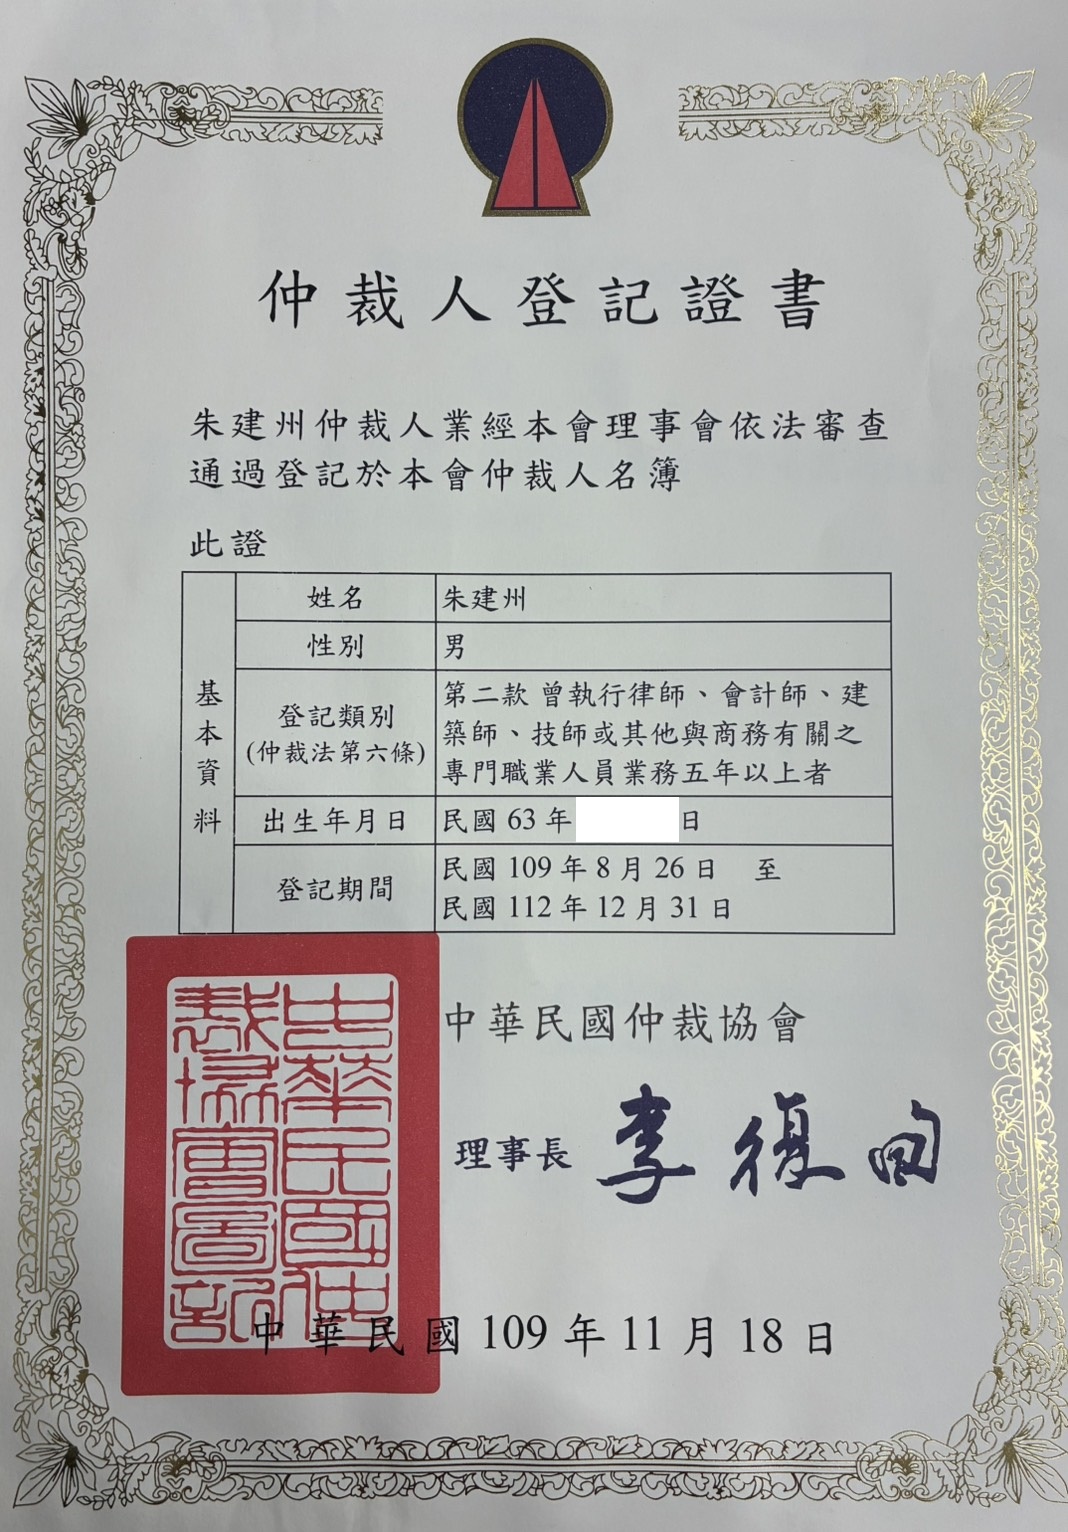 仲裁人登記證書
朱建州仲裁人業經本會理事會依法審查
通過登記於本會仲裁人名簿
此證
基本資料
姓名
朱建州
性別
男
登記類別
(仲裁法第六條)
第二款 曾執行律師、會計師、建
築師、技師或其他與商務有關之
專門職業人員業務五年以上者
出生年月日
民國 63 年 日
登記期間
民國 109 年 8 月 26 日 至
民國 112 年 12 月 31 日
中華民國仲裁協會
理事長 李復甸
中華民國仲
裁協會圖記
中華民國 109 年 11 月 18 日